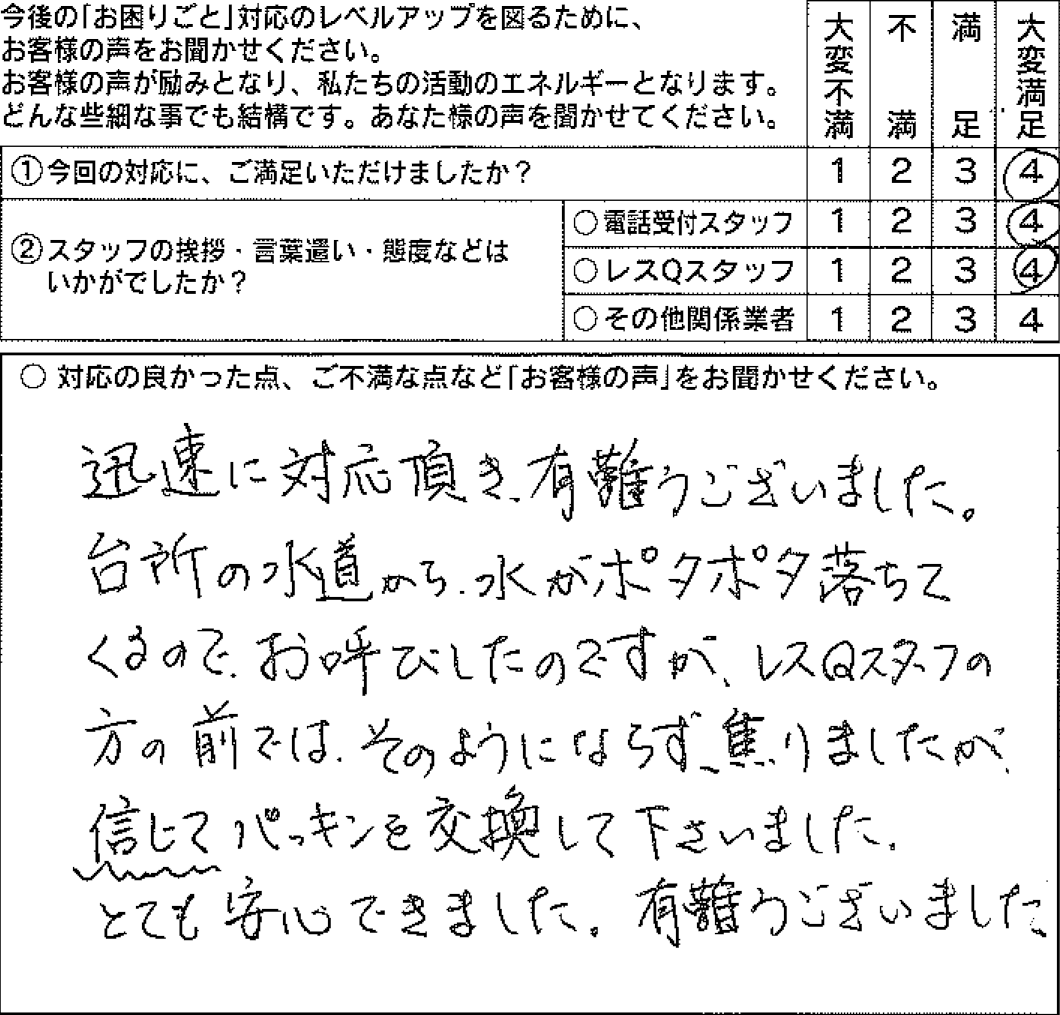 今後の「お困りごと」対応のレベルアップを図るために、
お客様の声をお聞かせください。
お客様の声が励みとなり、私たちの活動のエネルギーとなります。
どんな些細な事でも結構です。あなた様の声を聞かせてください。
大変不満 不満 満足 大変満足
①今回の対応に、ご満足いただけましたか？ 1 2 3 4
②スタッフの挨拶・言葉遣い・態度などは
いかがでしたか？
○電話受付スタッフ 1 2 3 4
○レスQスタッフ 1 2 3 4
○その他関係業者 1 2 3 4
○ 対応の良かった点、ご不満な点など「お客様の声」をお聞かせください。
迅速に対応頂き、有難うございました。
台所の水道から、水がポタポタ落ちて
くるので、お呼びしたのですが、レスQスタッフの
方の前では、そのようにならず、焦りましたが、
信じてパッキンを交換して下さいました。
とても安心できました。有難うございました